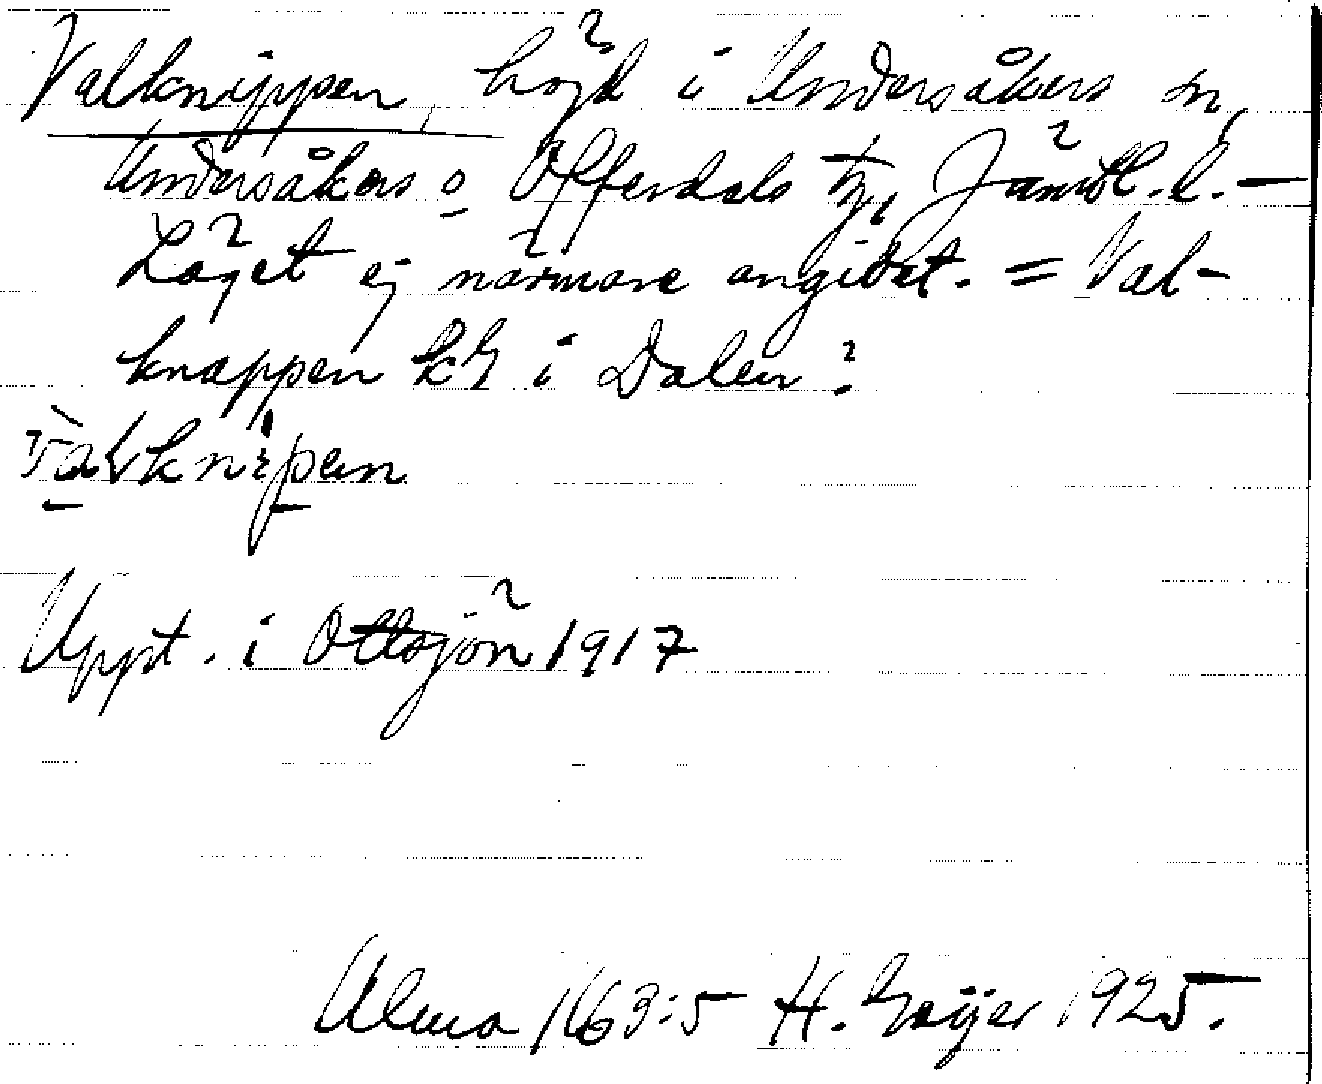 Valknippen, höjd i Undersåkers sn,
Undersåkers o Offerdals tg, Jämtl. l. —
Läget ej närmare angivet. = Val-
knappen k7 i Dalen?
Uppt. i Ottsjön 1917
Ulma 163:5 H. Geijer 1925.